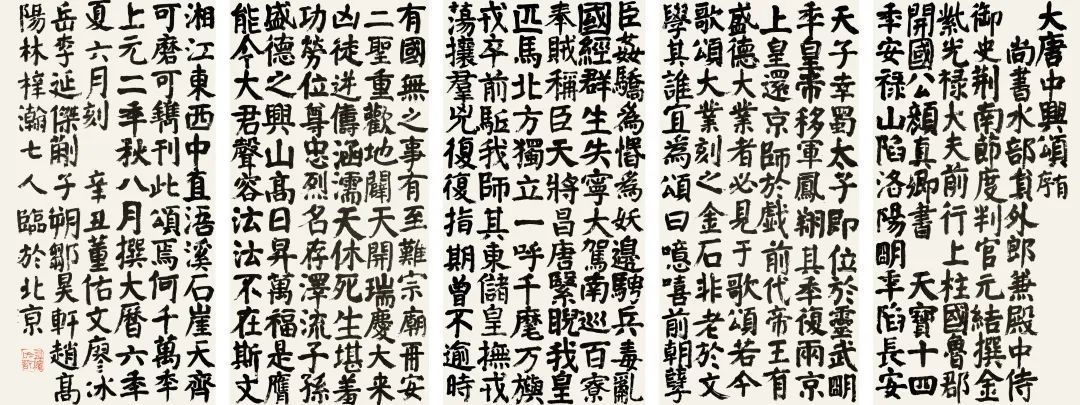 大唐中興頌有序
尚書水部員外郎兼殿中侍
御史荆南節度判官元結撰金
紫光禄大夫前行上柱國魯郡
開國公顔真卿書 天寶十四
秊安禄山陷洛陽明秊陷長安
天子幸蜀太子即位於靈武明
秊皇帝移軍鳳翔其秊復兩京
上皇還京師於戲前代帝王有
盛德大業者必見于歌頌若今
歌頌大業刻之金石非老於文
學其誰宜為頌曰噫嘻前朝孽
臣姦驕為惛為妖邊騁兵毒亂
國經群生失寧大駕南巡百寮
奉賊稱臣天將昌唐緊睨我皇
匹馬北方獨立一呼千麾万旟
戎卒前駈我師其東儲皇撫戎
蕩攘羣兇復復指期曾不逾時
有國無之事有至難宗廟再安
二聖重歡地闢天開瑞慶大来
凶徒逆儔涵濡天休死生堪羞
功勞位尊忠烈名存澤流子孫
盛德之興山髙日昇萬福是膺
能令大君聲容法法不在斯文
湘江東西中直浯溪石崖天齊
可磨可鐫刊此頌焉何千萬秊
上元二秊秋八月撰大曆六秊
夏六月刻 辛丑董佑文廖冰
岳季延傑蒯子朔鄒昊軒趙髙
陽林梓瀚七人臨於北京